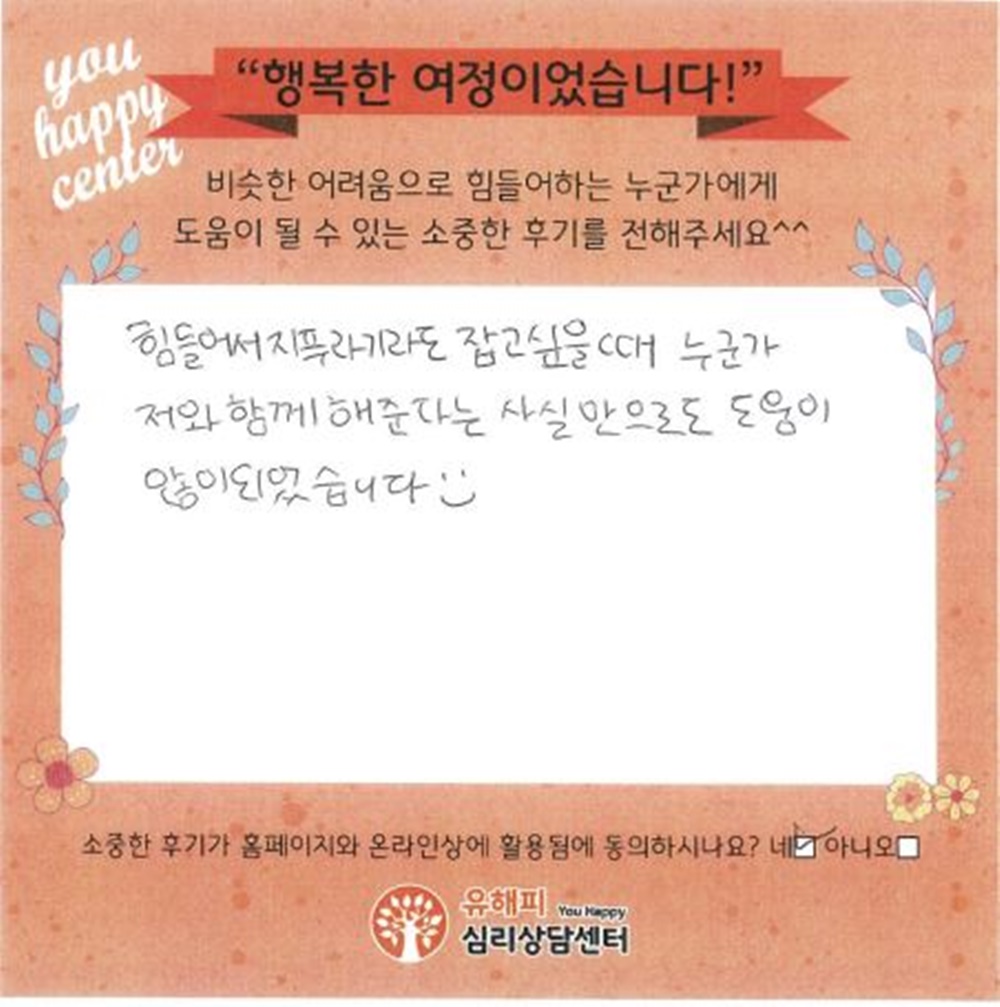 you
happy
center
“행복한 여정이었습니다!”
비슷한 어려움으로 힘들어하는 누군가에게
도움이 될 수 있는 소중한 후기를 전해주세요^^
힘들어서 지푸라기라도 잡고싶을때 누군가
저와 함께 해준다는 사실만으로도 도움이
많이되었습니다 :)
소중한 후기가 홈페이지와 온라인상에 활용됨에 동의하시나요? 네☑ 아니오☐
유해피 You Happy
심리상담센터